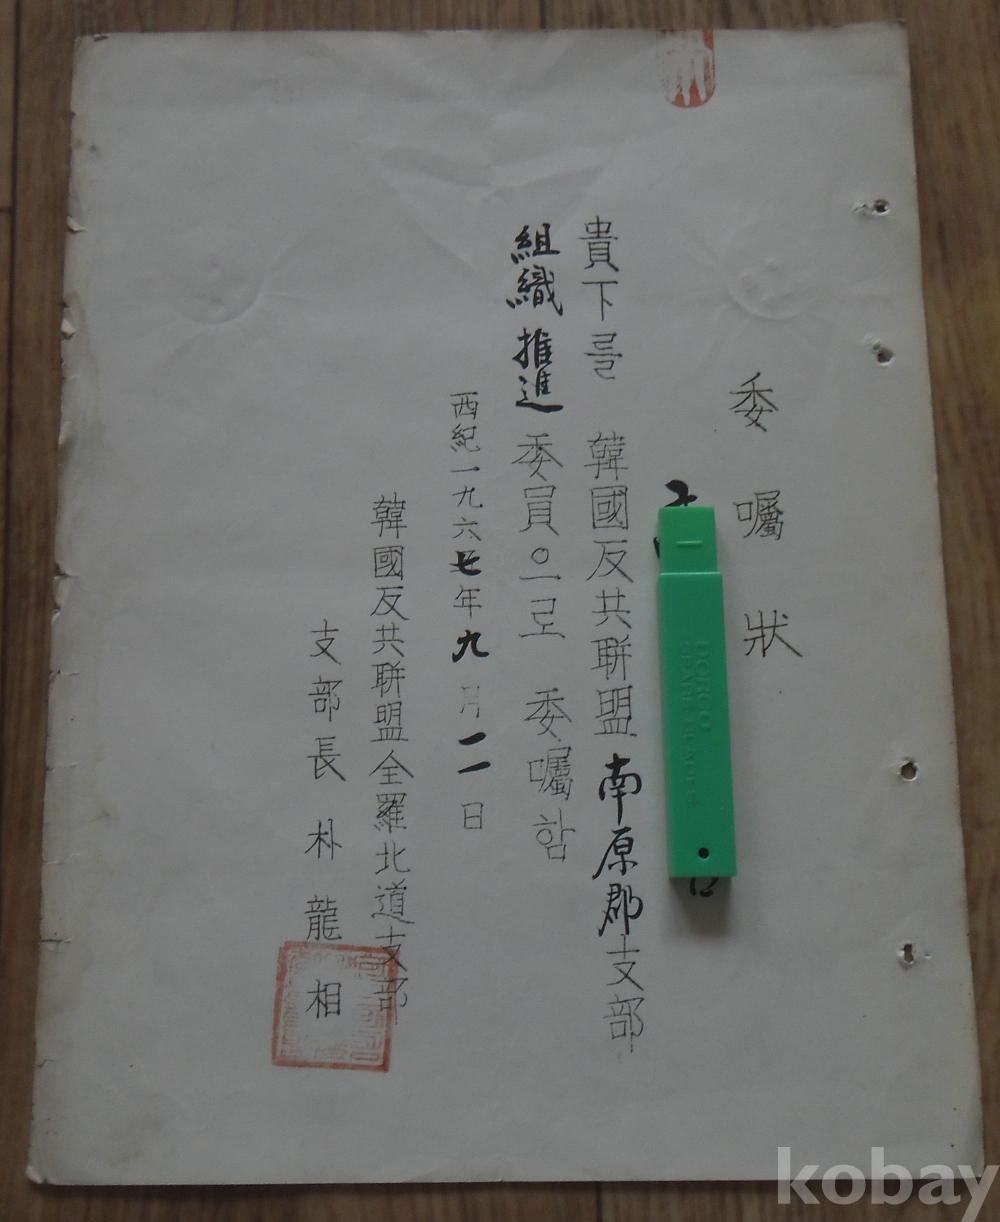 委囑狀
貴下를 韓國反共聯盟 南原郡支部
組織推進 委員으로 委囑함
西紀一九六七年九月一一日
韓國反共聯盟全羅北道支部
支部長 朴龍相
DORCO
kobay